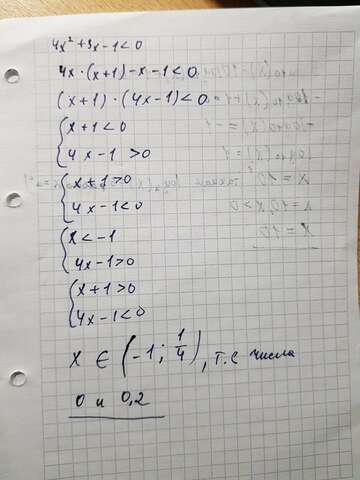 4x² + 3x - 1 < 0
4x · (x+1) - x - 1 < 0
(x+1) · (4x-1) < 0
{ x + 1 < 0
{ 4x - 1 > 0
{ x + 1 > 0
{ 4x - 1 < 0
{ x < -1
{ 4x - 1 > 0
{ x + 1 > 0
{ 4x - 1 < 0
x ∈ (-1; 1/4), т.е числа
0 и 0,2